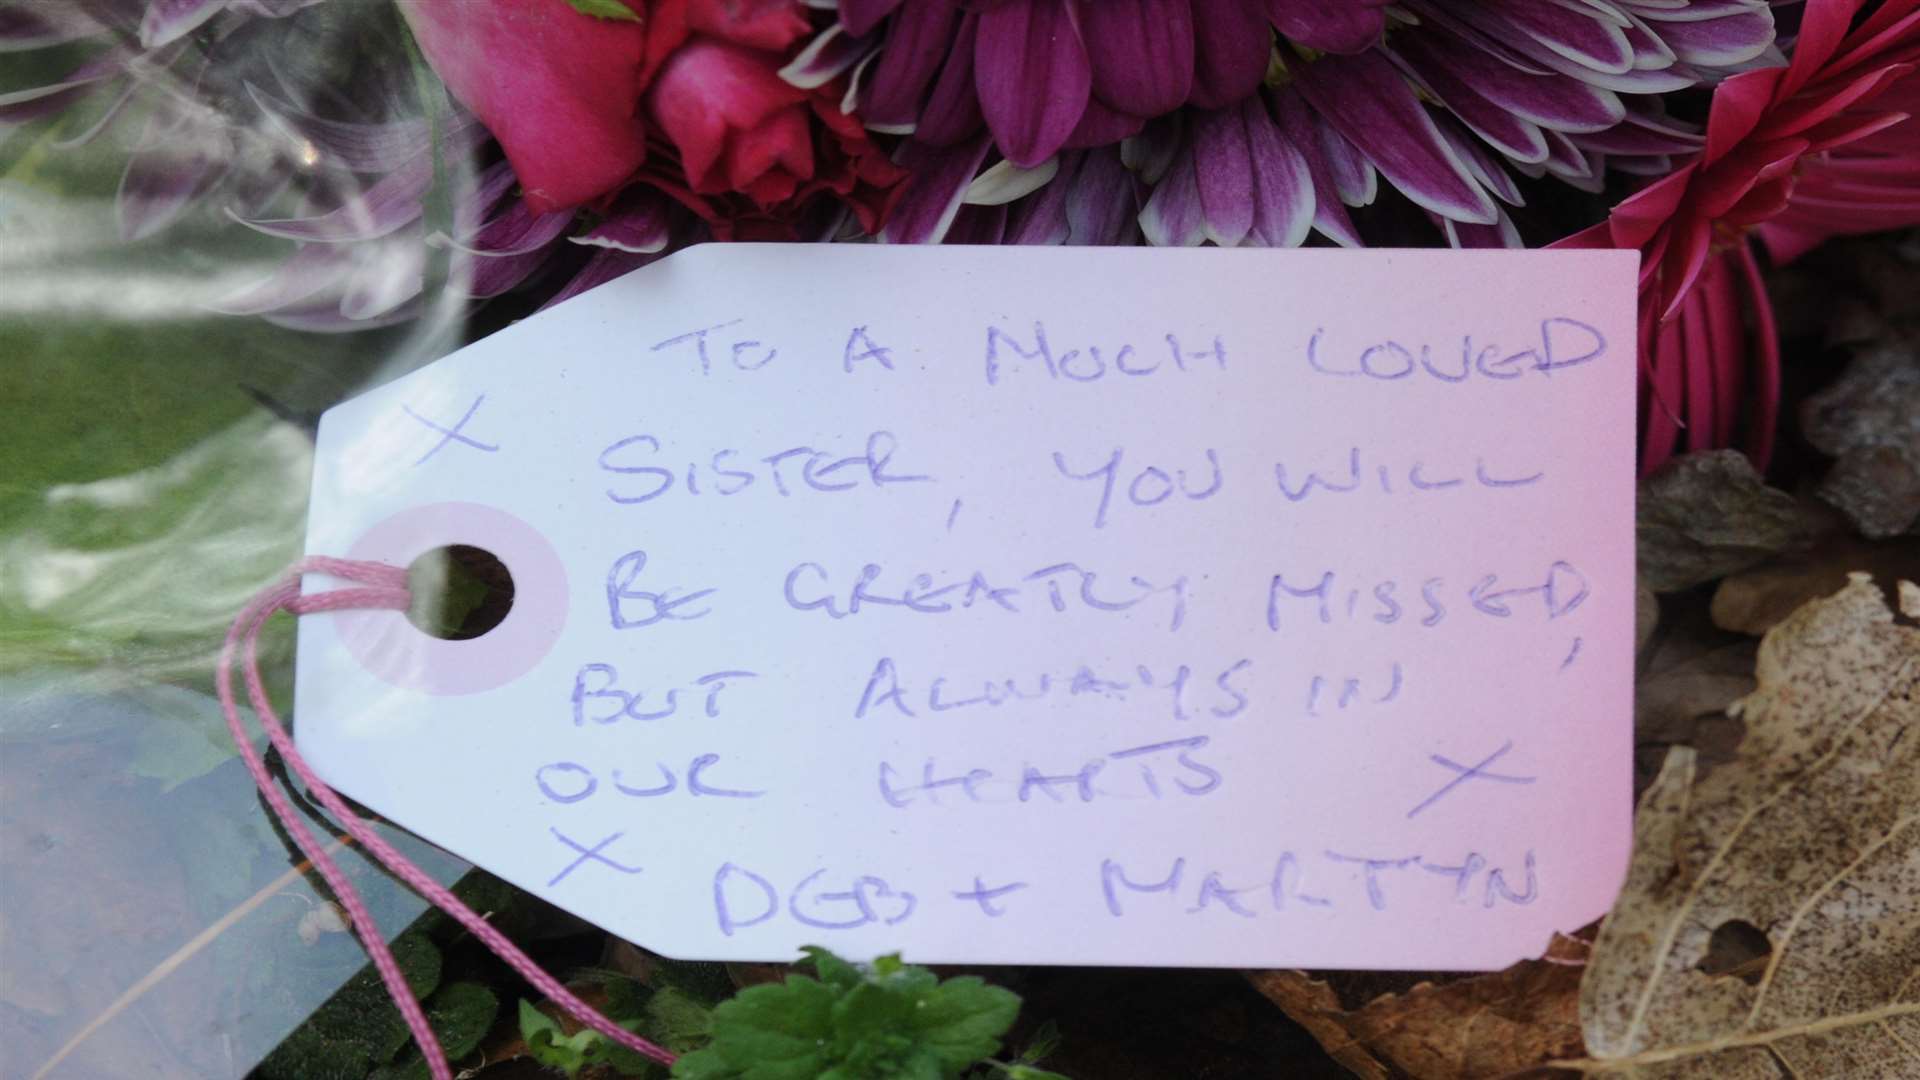 TO A MUCH LOVED
X
SISTER, YOU WILL
BE GREATLY MISSED,
BUT ALWAYS IN
OUR HEARTS X
X
DEB + MARTYN